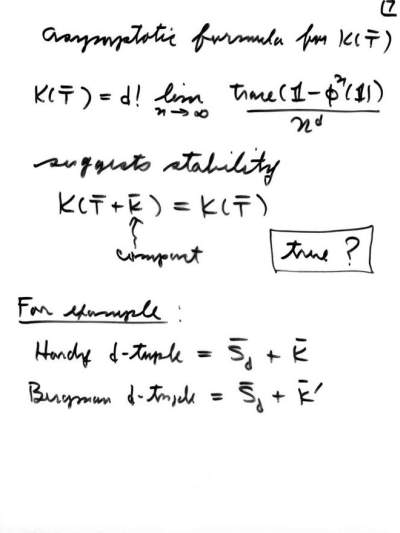 7
asymptotic formula for K(T̄)
K(T̄) = d! lim n→∞ trace(1 − φⁿ(1)) / nᵈ
suggests stability
K(T̄ + k̄) = K(T̄)
compact
true ?
For example :
Hardy d-tuple = S̄_d + k̄
Bergman d-tuple = S̄_d + k̄′